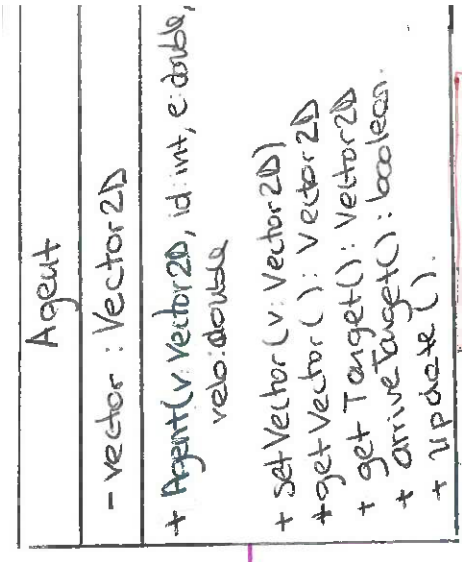 Agent
- vector : Vector2D
+ Agent(v: Vector2D, id: int, e: double,
velo: double
+ setVector(v: Vector2D)
+ getVector() : Vector2D
+ get Target() : Vector2D
+ arriveTarget() : boolean.
+ update().